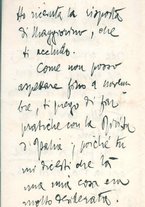 Ho ricevuta la risposta
di Maggiorino, che
ti accludo.
Come non posso
aspettare fino a novem
bre, ti prego di far
pratiche con la Rivista
d'Italia, poiché tu
mi dicesti che là
una mia cosa era
molto desiderata.